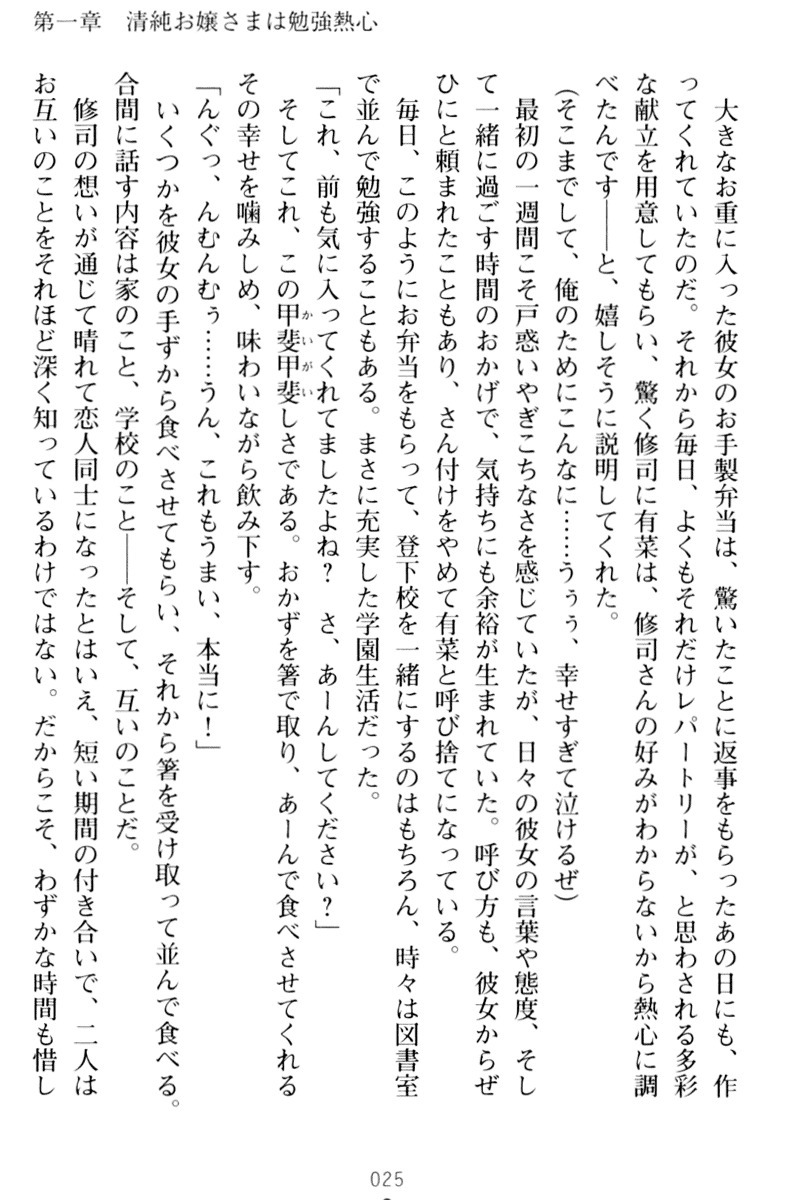 第一章　清純お嬢さまは勉強熱心
　大きなお重に入った彼女のお手製弁当は、驚いたことに返事をもらったあの日にも、作
ってくれていたのだ。それから毎日、よくもそれだけレパートリーが、と思わされる多彩
な献立を用意してもらい、驚く修司に有菜は、修司さんの好みがわからないから熱心に調
べたんです――と、嬉しそうに説明してくれた。
（そこまでして、俺のためにこんなに……うぅぅ、幸せすぎて泣けるぜ）
　最初の一週間こそ戸惑いやぎこちなさを感じていたが、日々の彼女の言葉や態度、そし
て一緒に過ごす時間のおかげで、気持ちにも余裕が生まれていた。呼び方も、彼女からぜ
ひにと頼まれたこともあり、さん付けをやめて有菜と呼び捨てになっている。
　毎日、このようにお弁当をもらって、登下校を一緒にするのはもちろん、時々は図書室
で並んで勉強することもある。まさに充実した学園生活だった。
「これ、前も気に入ってくれてましたよね？　さ、あーんしてください？」
　そしてこれ、この甲斐甲斐しさである。おかずを箸で取り、あーんで食べさせてくれる
その幸せを噛みしめ、味わいながら飲み下す。
「んぐっ、んむんむぅ……うん、これもうまい、本当に！」
　いくつかを彼女の手ずから食べさせてもらい、それから箸を受け取って並んで食べる。
合間に話す内容は家のこと、学校のこと――そして、互いのことだ。
　修司の想いが通じて晴れて恋人同士になったとはいえ、短い期間の付き合いで、二人は
お互いのことをそれほど深く知っているわけではない。だからこそ、わずかな時間も惜し
025